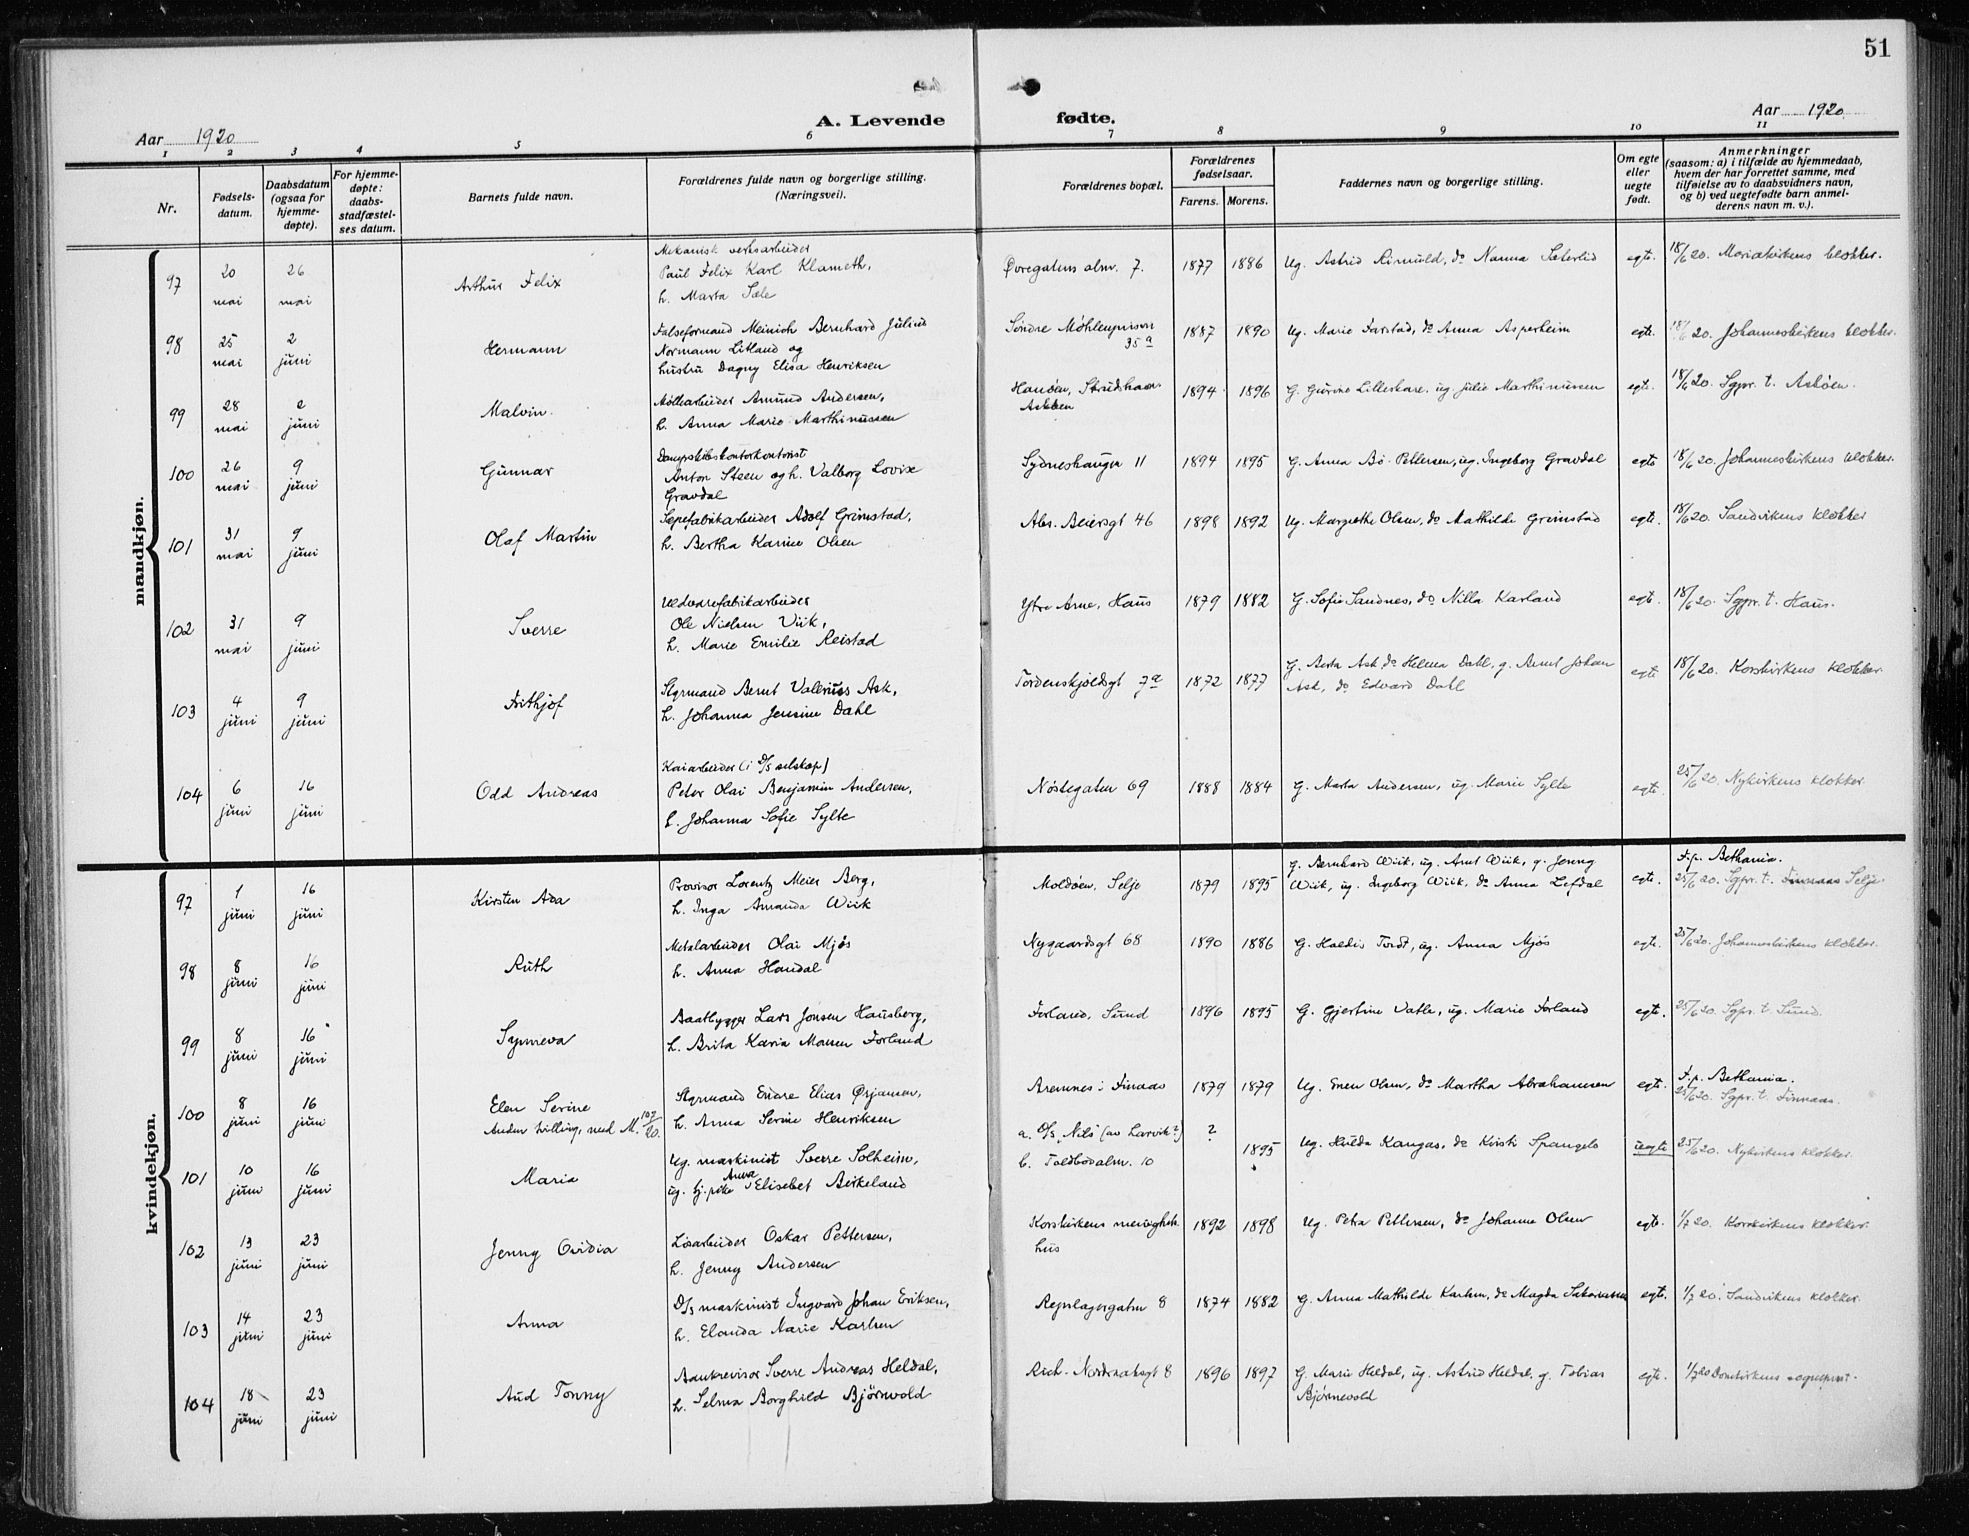 51
Aar 1920
A. Levende fødte.
Aar 1920.
1 2 3 4 5 6 7 8 9 10 11
Nr.
Fødsels-
datum.
Daabsdatum
(ogsaa for
hjemme-
døpte).
For hjemme-
døpte:
daabs-
stadfæstel-
ses datum.
Barnets fulde navn.
Forældrenes fulde navn og borgerlige stilling.
(Næringsvei).
Forældrenes bopæl.
Forældrenes
fødselsaar.
Farens. Morens.
Faddernes navn og borgerlige stilling.
Om egte
eller
uegte
født.
Anmerkninger
(saasom: a) i tilfælde av hjemmedaab,
hvem der har forrettet samme, med
tilføielse av to daabsvidners navn,
og b) ved uegtefødte barn anmel-
derens navn m. v.).
mandkjøn.
97 20 mai 26 mai Arthur Felix
Mekanisk verksarbeider
Paul Felix Karl Klameth,
h. Marta Sæle
Øvregatens alm. 7. 1877 1886 Ug. Astrid Rimuld, do Nanna Sæterlid egte. 18/6 20. Mariakirkens klokker.
98 25 mai 2 juni Hermann
Falseformand Meinich Bernhard Julius
Normann Litland og
hustru Dagny Elisa Henriksen
Søndre Møhlenprisvn 35 a 1887 1890 Ug. Marie Farstad, do Anna Asperheim egte. 18/6 20. Johanneskirkens klokker.
99 28 mai 2 juni Malvin.
Møllearbeider Amund Andersen,
h. Anna Marie Marthinussen
Hanøen, Strudshavn
Askøen 1894 1896 G. Gurine Lillerhare, ug. Julie Marthinussen egte 18/6 20. Sgpr. t. Askøen.
100 26 mai 9 juni Gunnar
Dampskibskontorkontorist
Anton Steen og h. Valborg Lovise
Gravdal
Sydneshaugen 11 1894 1895 G. Anna Bø-Pettersen, ug. Ingeborg Gravdal egte 18/6 20. Johanneskirkens klokker.
101 31 mai 9 juni Olaf Martin
Sæpefabrikarbeider Adolf Grimstad,
h. Bertha Karine Olsen
Abs. Beiersgt 46 1898 1892 Ug. Margrethe Olsen, do Mathilde Grimstad egte. 18/6 20. Sandvikens klokker
102 31 mai 9 juni Sverre
Uldvarefabrikarbeider
Ole Nielsen Viik,
h. Marie Emilie Reistad
Ytre Arne, Haus 1879 1882 G. Sofie Sandnes, do Nilla Karland egte. 18/6 20. Sgpr. t. Haus.
103 4 juni 9 juni Frithjof
Styrmand Bernt Valerius Ask,
h. Johanna Jensine Dahl
Tordenskjoldsgt 7a 1872 1877 G. Berta Ask, do Helena Dahl, g. Arnt Johan
Ask, do Edvard Dahl egte 18/6 20. Korskirkens klokker.
104 6 juni 16 juni Odd Andreas
Kaiarbeider (i D/S selskap)
Peter Olai Benjamin Andersen,
h. Johanna Sofie Sylte
Nøstegaten 69 1888 1884 G. Marta Andersen, ug. Marie Sylte egte. 25/6 20. Nykirkens klokker
kvindekjøn.
97 1 juni 16 juni Kirsten Ada
Provisor Lorentz Meier Berg,
h. Inga Amanda Wiik
Moldøen, Selje 1879 1895 G. Bernhard Wiik, ug. Arnt Wiik, g. Jenny
Wiik, ug. Ingeborg Wiik, do Anna Lefdal egte. F.p. Bethania.
25/6 20. Sgpr. t. Finnaas Selje
98 8 juni 16 juni Ruth
Metalarbeider Olai Mjøs
h. Anna Handal
Nygaardsgt 68 1890 1886 G. Haldis Tvedt, ug. Anna Mjøs egte. 25/6 20. Johanneskirkens klokker.
99 8 juni 16 juni Synneva
Baatbygger Lars Jonsen Hausberg,
h. Brita Karia Monsen Forland
Forland, Sund 1896 1895 G. Gjertine Vatle, ug. Marie Forland egte. 25/6 20. Sgpr. t. Sund.
100 8 juni 16 juni Elen Serine
Anden tvilling, med M. 107/20.
Styrmand Endre Elias Ørjansen,
h. Anna Serine Henriksen
Bremnes i Finaas 1879 1879 Ug. Enen Olsen, do Martha Abrahamsen egte. F.p. Bethania.
25/6 20. Sgpr. t. Finnaas.
101 10 juni 16 juni Maria
Ug. maskinist Sverre Solheim,
ug. tj.pike Anna Elisabet Birkeland
a. D/S "Nils" (av Larvik?) ?
b. Toldbodalm. 10 1895 Ug. Hulda Kangas, do Kirsti Spangelo uegte 25/6 20. Nykirkens klokker.
102 13 juni 23 juni Jenny Ovidia
Løsarbeider Oskar Pettersen,
h. Jenny Andersen
Korskirkens menighets
hus 1892 1898 Ug. Petra Pettersen, do Johanne Olsen egte. 1/7 20. Korskirkens klokker.
103 14 juni 23 juni Anna
D/S maskinist Ingvard Johan Eriksen,
h. Elanda Marie Karlsen
Repslagergaten 8 1874 1882 G. Anna Mathilde Karlsen, do Magda Jakobsen egte. 1/7 20. Sandvikens klokker.
104 18 juni 23 juni Aud Tonny
Bankrevisor Sverre Andreas Heldal,
h. Selma Borghild Bjørnvold
Rich. Nordraaksgt 8 1896 1897 G. Marie Heldal, ug. Astrid Heldal, g. Tobias
Bjørnevold egte. 1/7 20 Domkirkens sogneprest.